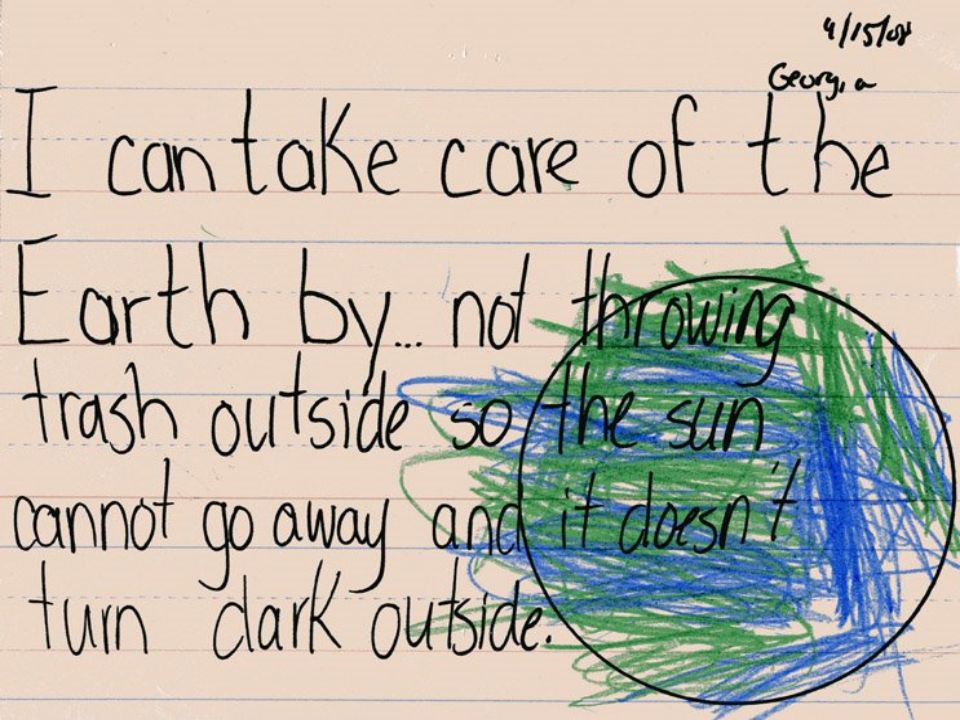 4/15/08
Georgia
I can take care of the
Earth by... not throwing
trash outside so the sun
cannot go away and it doesn't
turn dark outside.